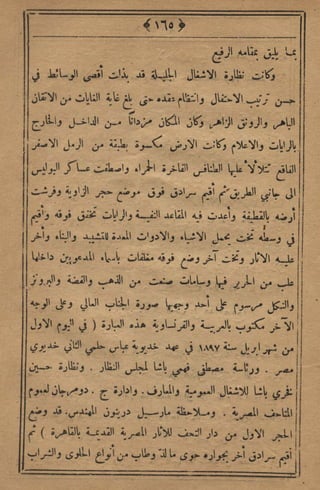 ﴿ ١٦٥ ﴾
بما يليق بمقامه الرفيع
وكانت نظارة الاشغال الجليلة قد بذلت أقصى الوسائط في
حسن ترتيب الاحتفال وانتظام عقده حتى بلغ غاية الغايات من الاتقان
الباهر والرونق الزاهر وكان المكان مزداناً من الداخل والخارج
بالرايات والاعلام وكانت الارض مكسوة بطبقة من الرمل الاصفر
الفاقع تتلألأ عليها الطنافس الفاخرة الحمراء واصطفت عساكر البوليس
الى جانبي الطريق ثم أقيم سرادق فوق موضع حجر الزاوية وفرشت
أرضه بالقطيفة وأعدت فيه المقاعد النفيسة والرايات تخفق فوقه وأقيم
في وسطه تخت يحمل الاشياء والادوات المعدة للتشييد والبناء وآخر
عليه الآثار وتخت آخر وضع فوقه مغلفات باسماء المدعوين داخلها
علب من الحرير فيها وسامات صنعت من الذهب والفضة والبرونز
والنكل مرسوم على أحد وجهيها صورة الجناب العالي وعلى الوجه
الآخر مكتوب بالعربية والفرنساوية هذه العبارة ( في اليوم الاول
من شهر ابريل سنة ١٨٩٧ في عهد خديوية عباس حلمي الثاني خديوي
مصر . ورئاسة مصطفى فهمي باشا لمجلس النظار . ونظارة حسين
فخري باشا للاشغال العمومية والمعارف . وادارة ج . دومرجان لعموم
المتاحف المصرية . وملاحظة مارسيل درينون المهندس . قد وضع
الحجر الاول من دار التحف للآثار المصرية القديمة بالقاهرة ) ثم
أقيم سرادق آخر بجواره حوى ما لذ وطاب من أنواع الحلوى والشراب